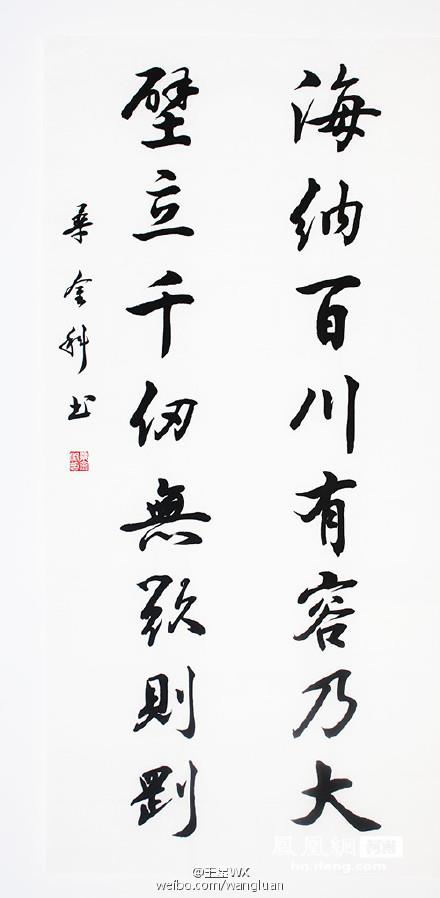 海納百川有容乃大
壁立千仞無欲則剛
桑金科书
鳳凰網 河南
hn.ifeng.com
@王栾WX
weibo.com/wangluan